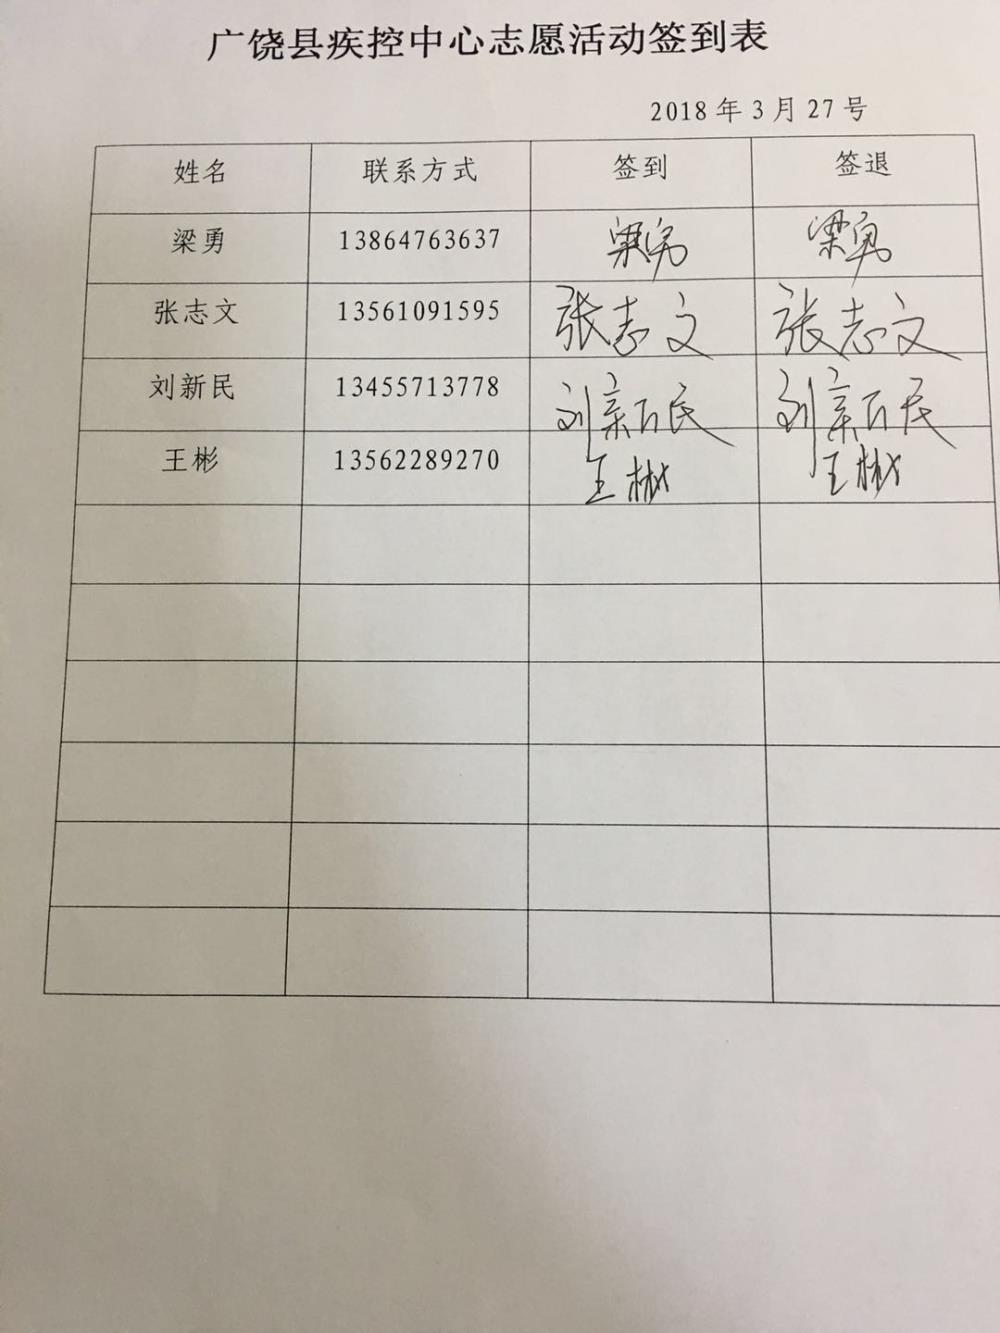 广饶县疾控中心志愿活动签到表
2018年3月27号
姓名 联系方式 签到 签退
梁勇 13864763637 梁勇 梁勇
张志文 13561091595 张志文 张志文
刘新民 13455713778 刘新民 刘新民
王彬 13562289270 王彬 王彬